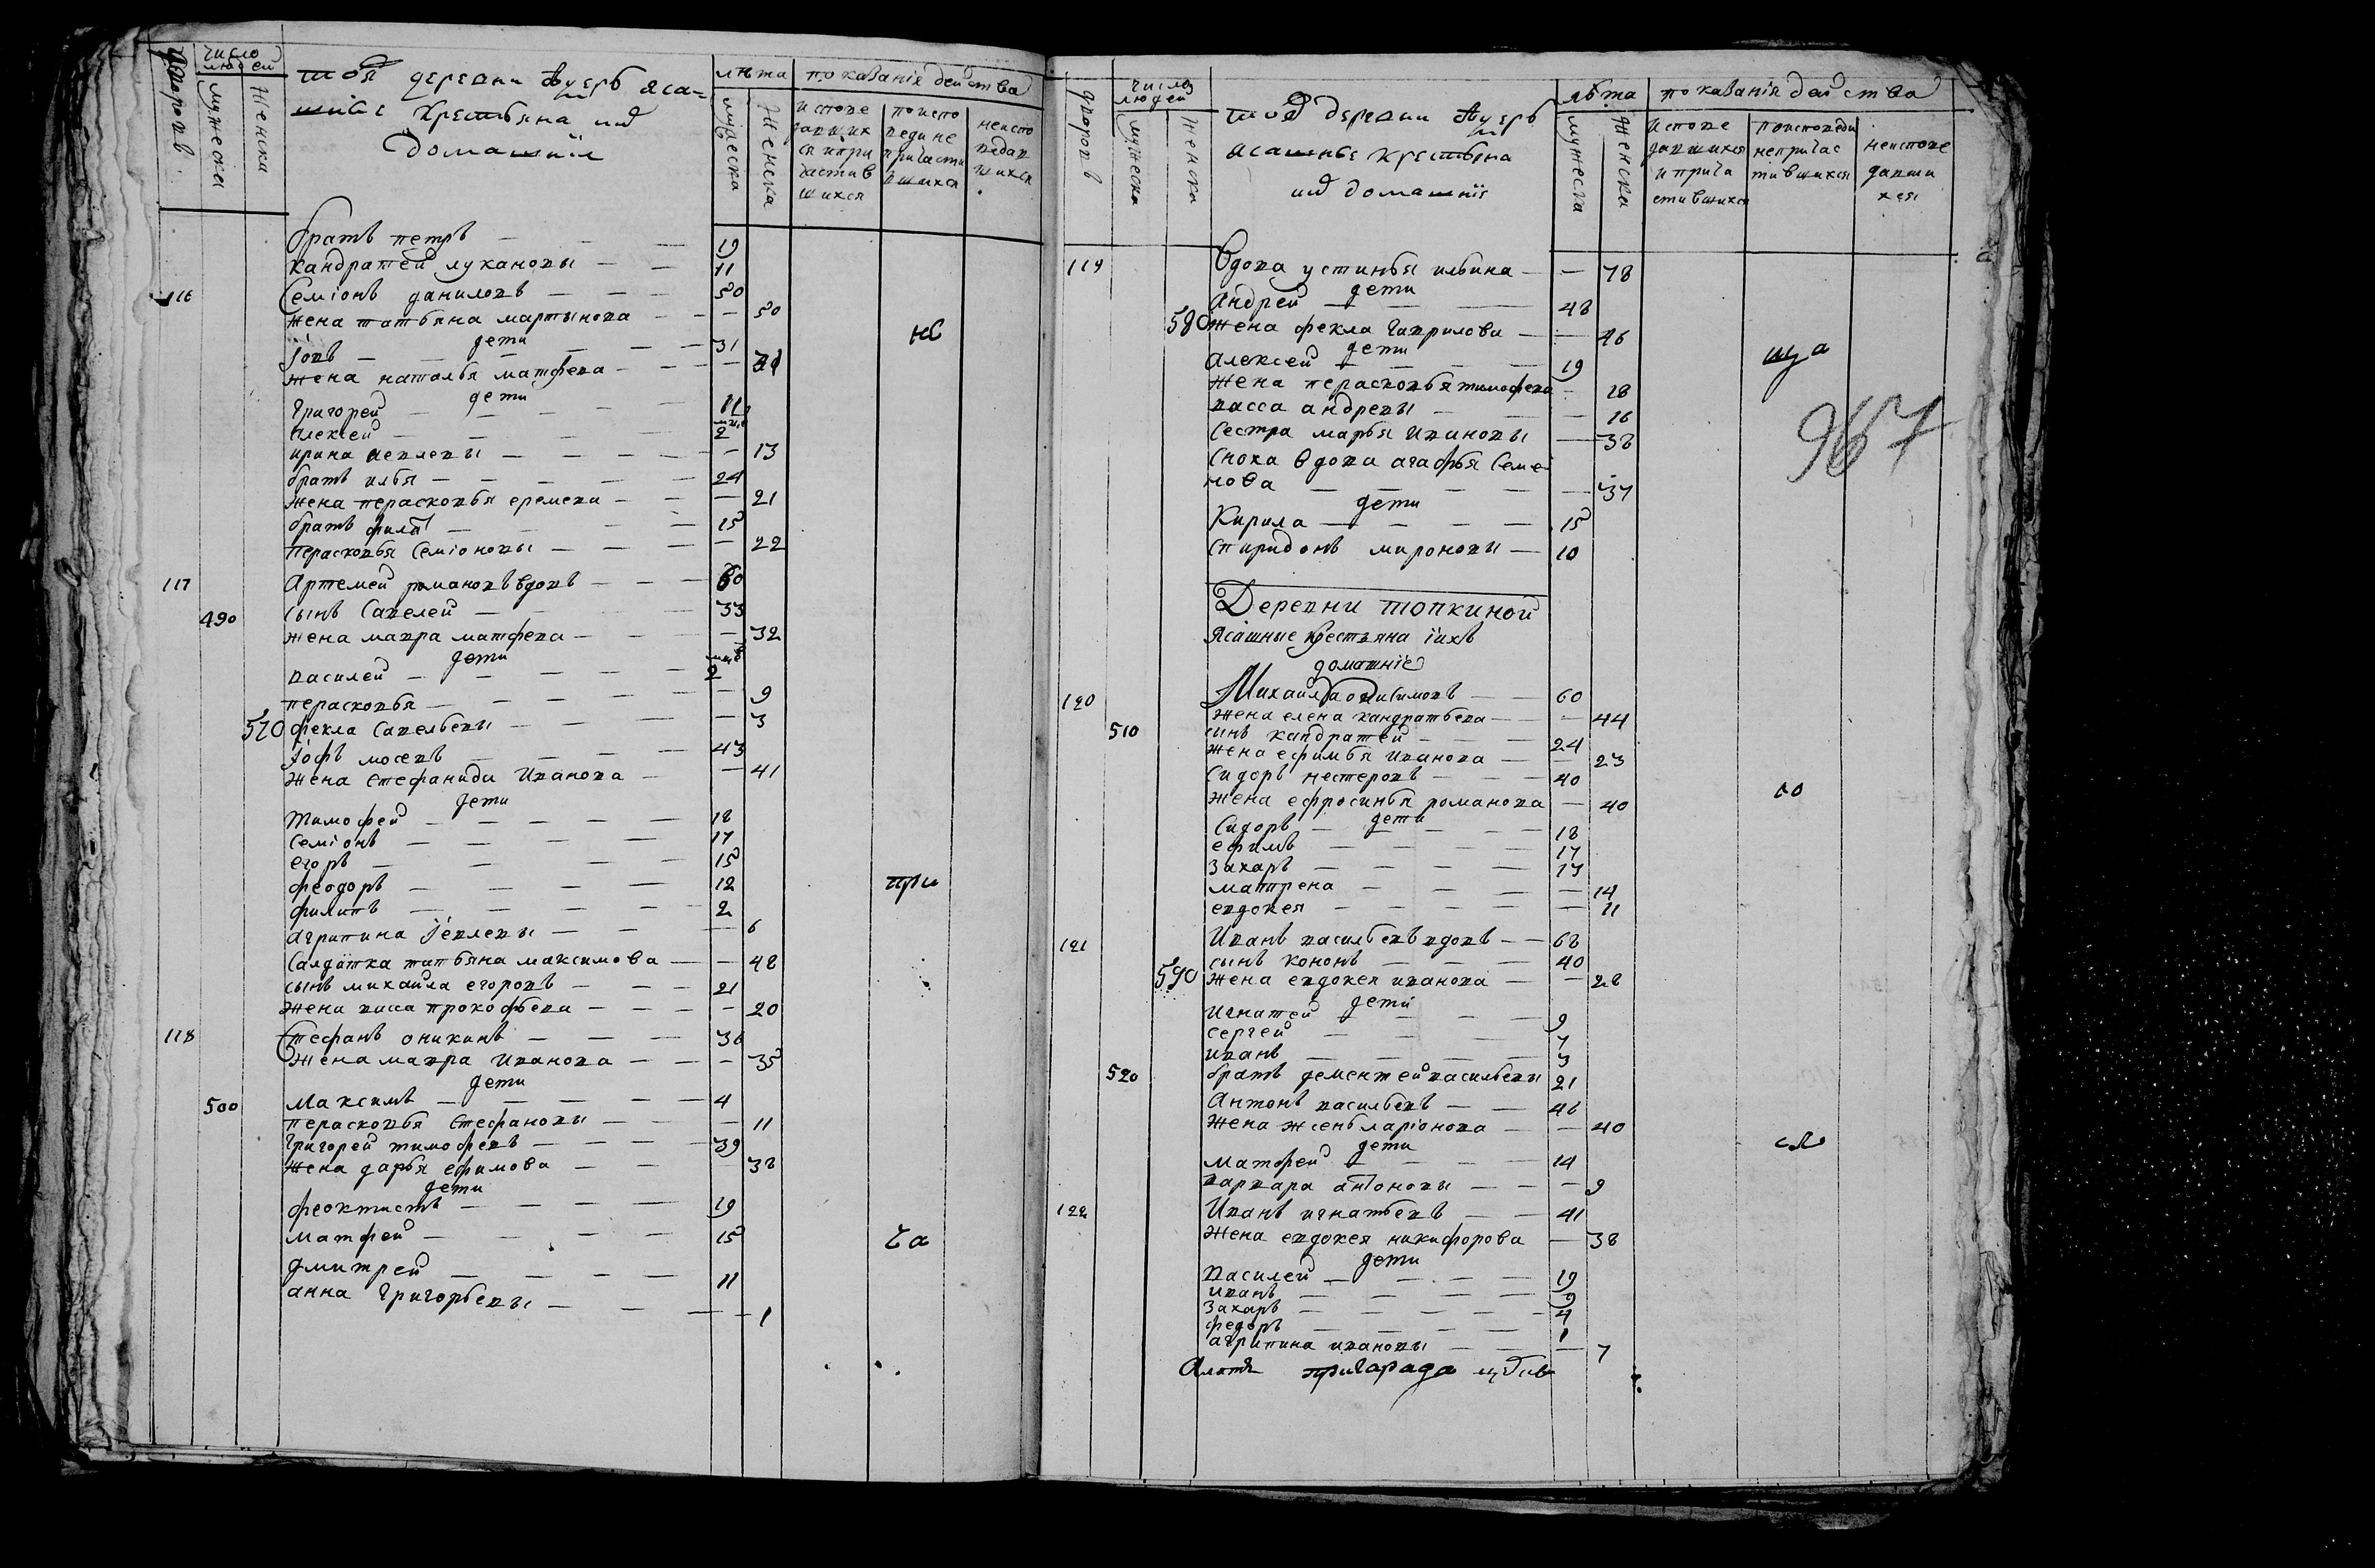 дворовъ
число людей
мужеска
женска
тоя деревни яса-
шные крестьяна ихъ
домашнiи
лѣта
мужеска
женска
показанiя действа
исповедавшихся и причастившихся
по исповеди не причастившихся
неисповедавшихся
братъ петръ — 19
кандратей лукановы — 11
116 Семiонъ даниловъ — 50
жена татьяна мартынова — 50
дети
Iовъ — 31
жена наталья матфева —
дети
григорей — 11
алексей — 2
ирина — 13
братъ илья — 24
жена перасковья еремева — 21
братъ филатъ — 15
перасковья Семiоновы — 22
не
117 Артемей романовъ вдовъ — 60
490 сынъ Савелей — 33
жена мавра матфева — 32
дети
василей — 2
перасковья — 9
570 фекла Савельевы — 3
Iофъ мосевъ — 43
жена Стефанида Иванова — 41
дети
Тимофей — 18
Семiонъ — 17
егоръ — 15
феодоръ — 12
филипъ — 2
агрипина Iевлевы — 6
Салдатка татьяна максимова — 48
сынъ михаила егоровъ — 21
жена васа прокофьева — 20
при
118 Стефанъ оникинъ — 36
жена мавра Иванова — 35
дети
500 Максимъ — 4
перасковья Стефановы — 11
Григорей тимофевъ — 39
жена дарья ефимова — 38
дети
феоктистъ — 19
матфей — 15
дмитрей — 11
анна григорьевы — 1
ча
дворовъ
число людей
мужеска
женска
тоя деревни
ясашные крестьяна
ихъ домашнiя
лѣта
мужеска
женска
показанiя действа
исповедавшихся и причастившихся
по исповеди непричастившихся
неисповедавшихся
119 Вдова устинья ильина — 78
дети
андрей — 48
580 жена фекла гаврилова — 46
дети
Алексей — 19
жена перасковья тимофева — 18
васса андревы — 16
Сестра марья Ивановы — 38
Сноха вдова агафья Семе
нова — 37
дети
Кирила — 15
Спиридонъ мироновы — 10
ща
967
Деревни топкиной
Ясашные крестьяна iихъ
домашнiе
120 Михаила онисимовъ — 60
жена елена кандратьева — 44
510 синъ кандратей — 24
жена ефимья Иванова — 23
Сидоръ нестеровъ — 40
жена ефросинья романова — 40
дети
Сидоръ — 18
ефимъ — 17
Захаръ — 13
матрена — 14
евдокея — 11
со
121 Иванъ васильевъ вдовъ — 68
сынъ кононъ — 40
590 жена евдокея иванова — 28
дети
Игнатей — 9
сергей — 7
иванъ — 3
520 братъ дементей васильевы 21
Антонъ васильевъ — 48
жена ларiонова — 40
дети
матфей — 14
варвара антоновы — 9
122 Иванъ игнатьевъ — 41
жена евдокея никифорова — 38
дети
Василей — 19
иванъ — 9
Захаръ — 4
федоръ — 1
агрипина ивановы — 7
пригарада